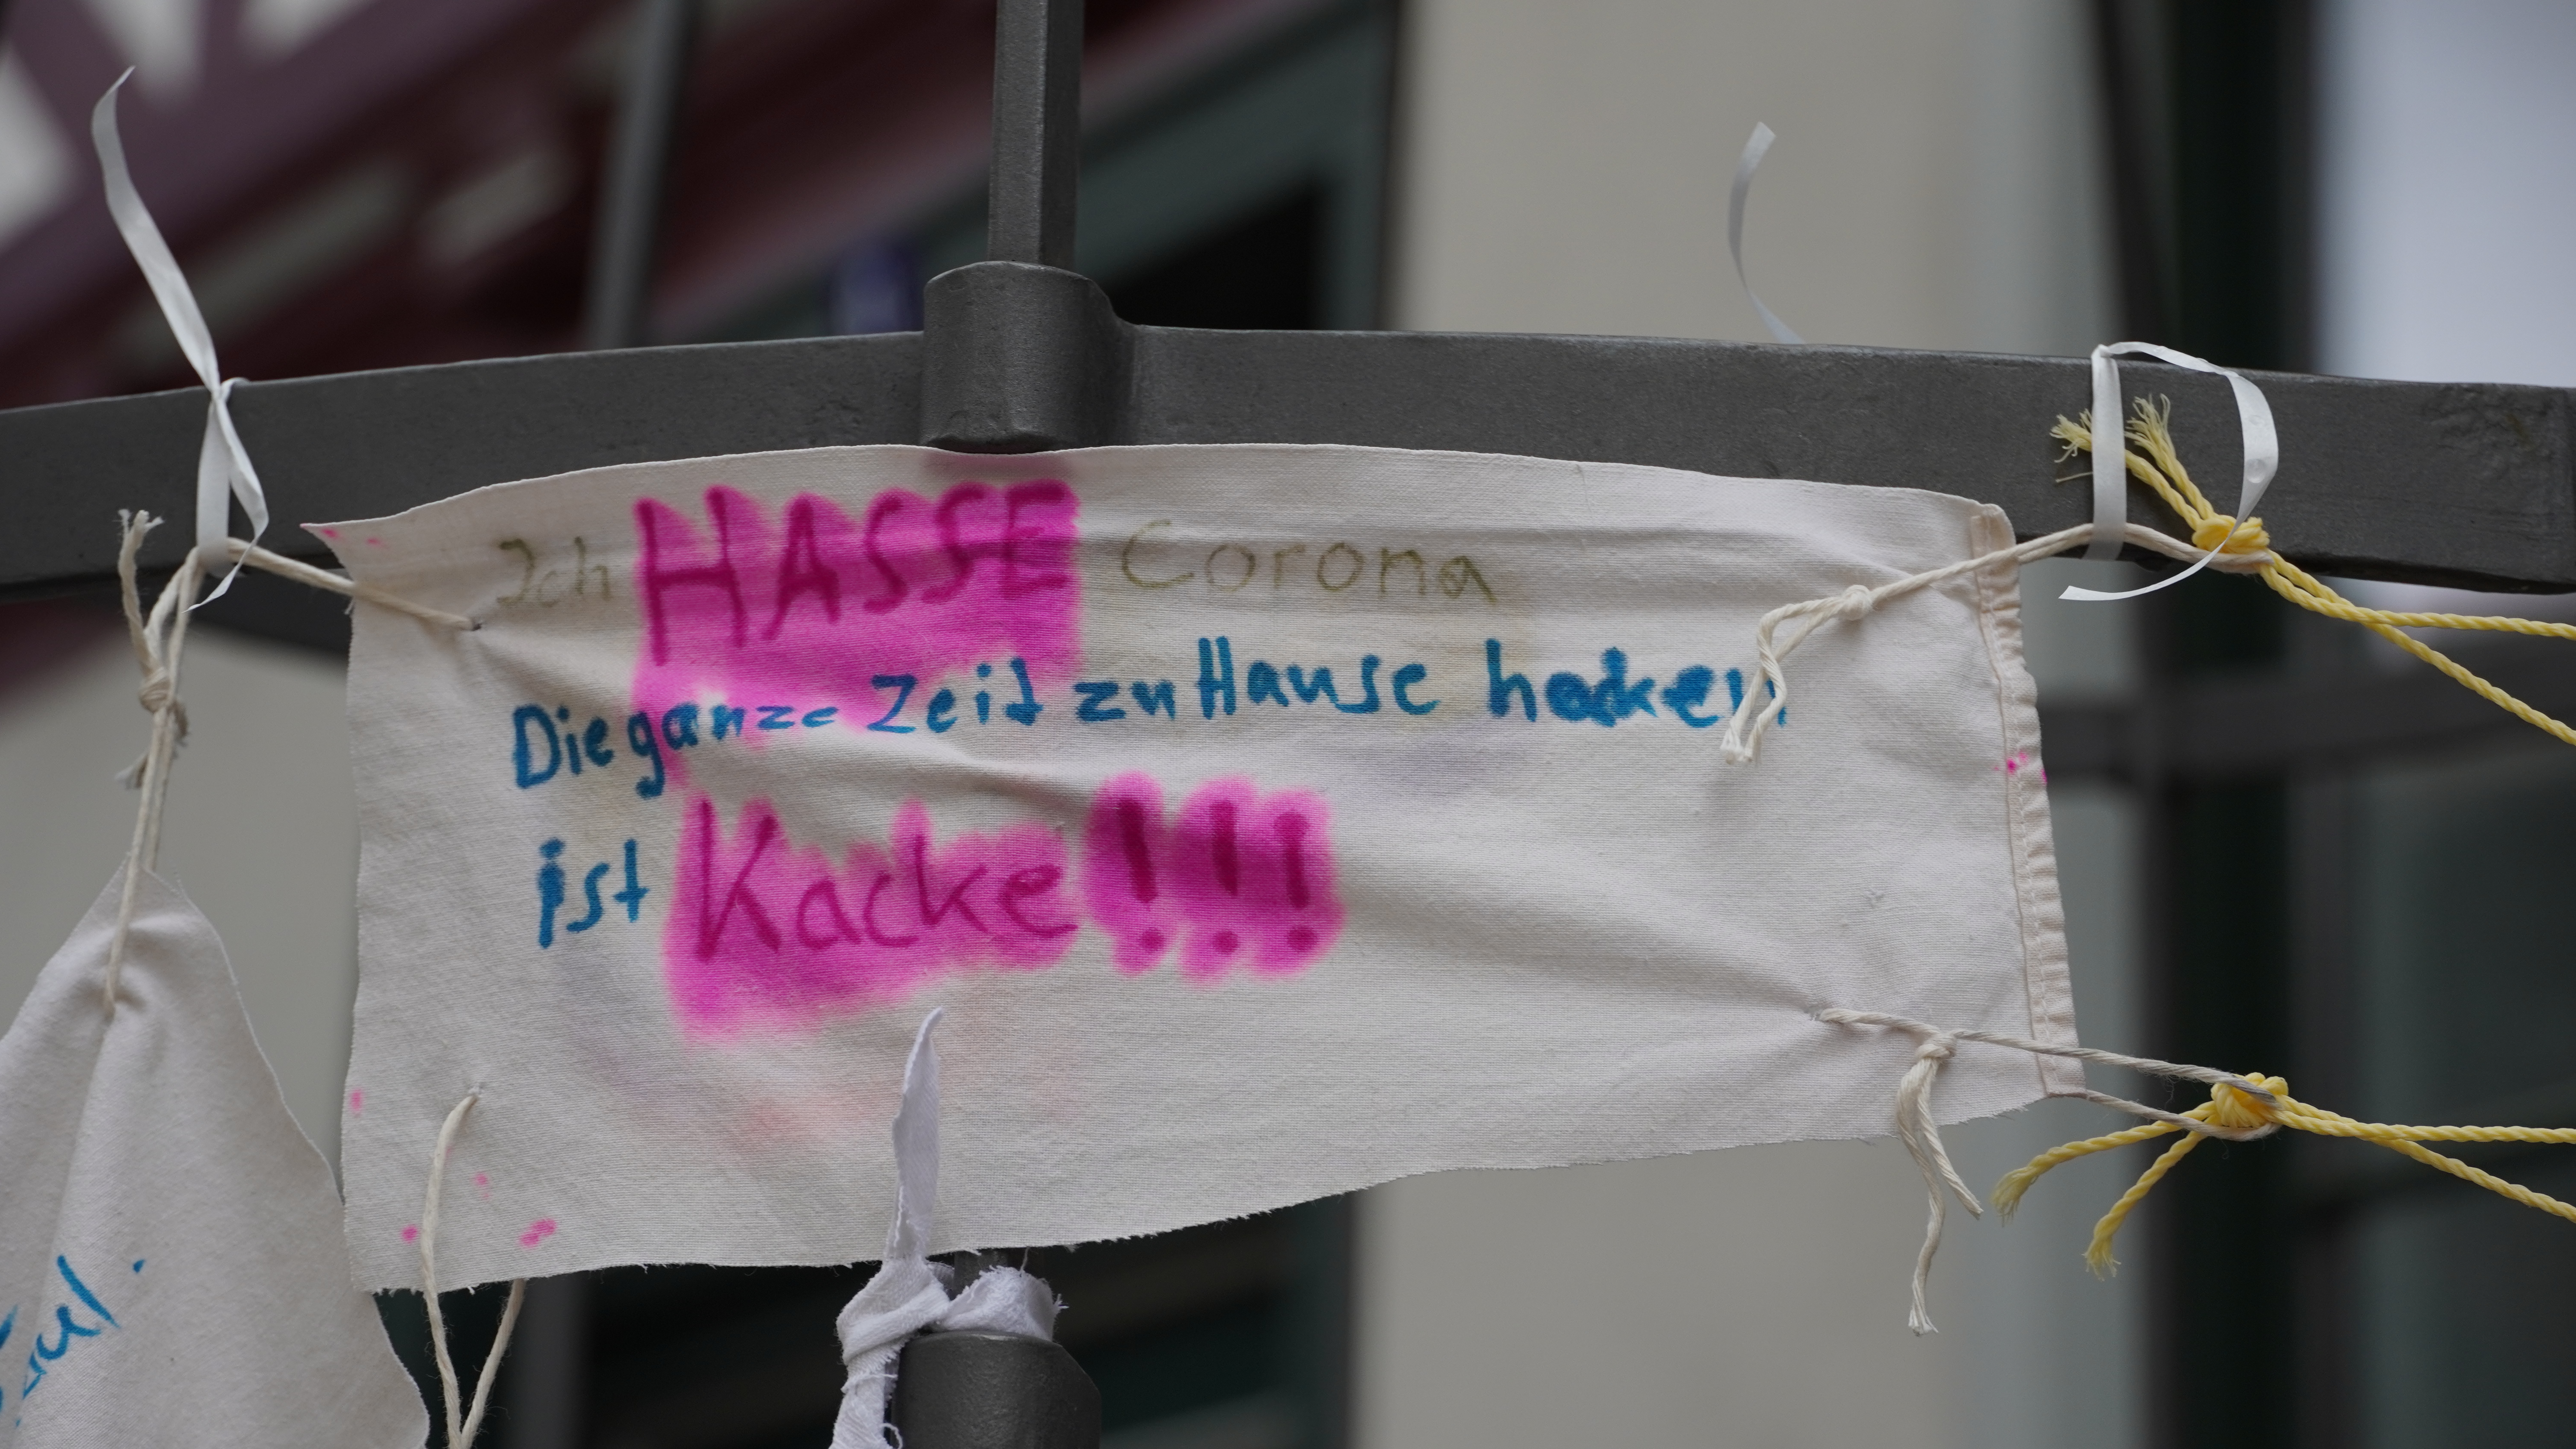 Ich HASSE Corona
Die ganze Zeit zu Hause hocken
ist Kacke!!!